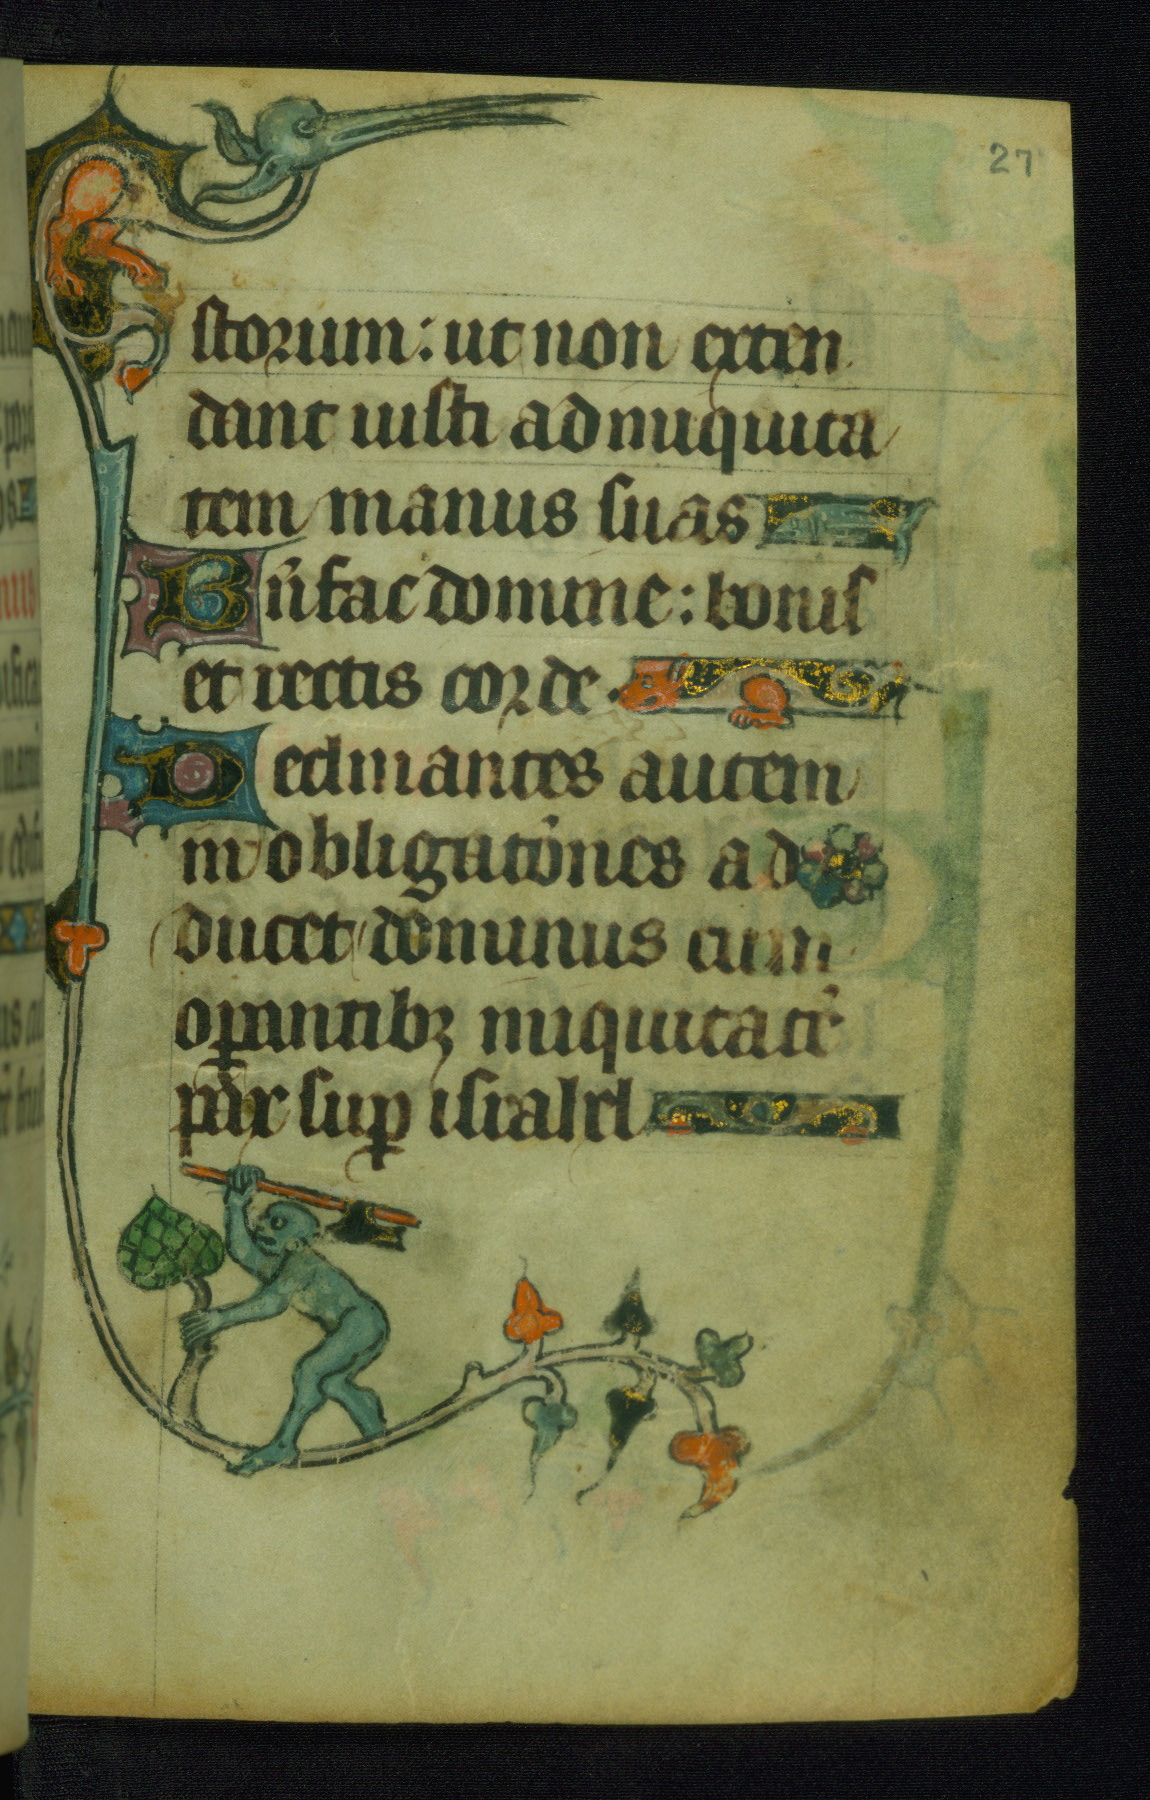 27
storum: ut non exten
dant iusti ad iniquita
tem manus suas
Bn̄fac domine: bonis
et rectis corde.
Declinantes autem
in obligatōnes ad
ducet dominus cum
oꝑantibꝫ iniquitatē
pax suꝑ israhel